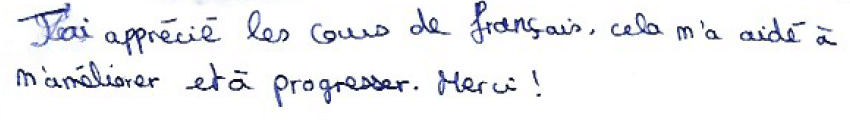 J'ai apprécié les cours de français, cela m'a aidé à
m'améliorer et à progresser. Merci !